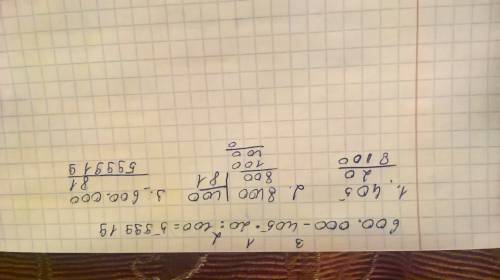 3 1 2
600.000 - 405 · 20 : 100 = 599919
1. 405
20
8100
2. 8100 | 100
800 | 81
100
100
0
3. 600.000
81
599919